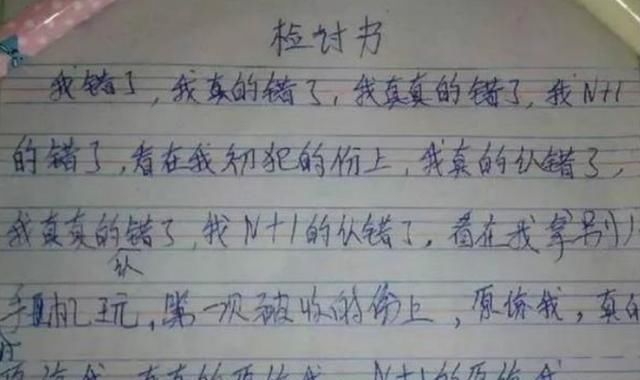 检讨书
我错了，我真的错了，我真真的错了，我N+1
的错了，看在我初犯的份上，我真的认错了，
我真真的错了，我N+1的认错了，看在我拿别人
认
手机玩，第一次被收的份上，原谅我，真的
原谅我，真真的原谅我，N+1的原谅我